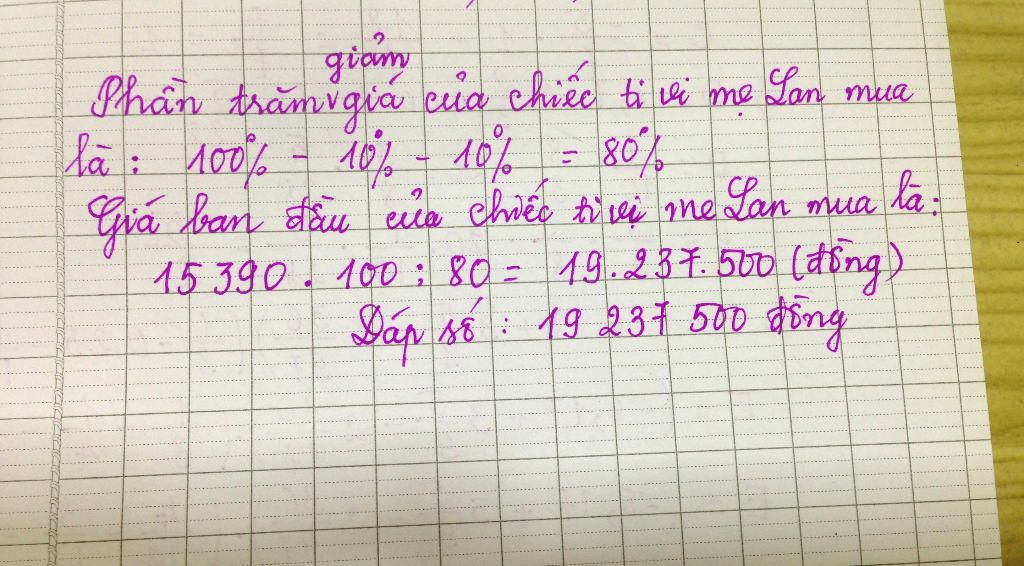 giảm
Phần trăm v giá của chiếc ti vi mẹ Lan mua
là : 100% - 10% - 10% = 80%
Giá ban đầu của chiếc ti vi mẹ Lan mua là:
15 390 . 100 : 80 = 19.237.500 (đồng)
Đáp số : 19 237 500 đồng